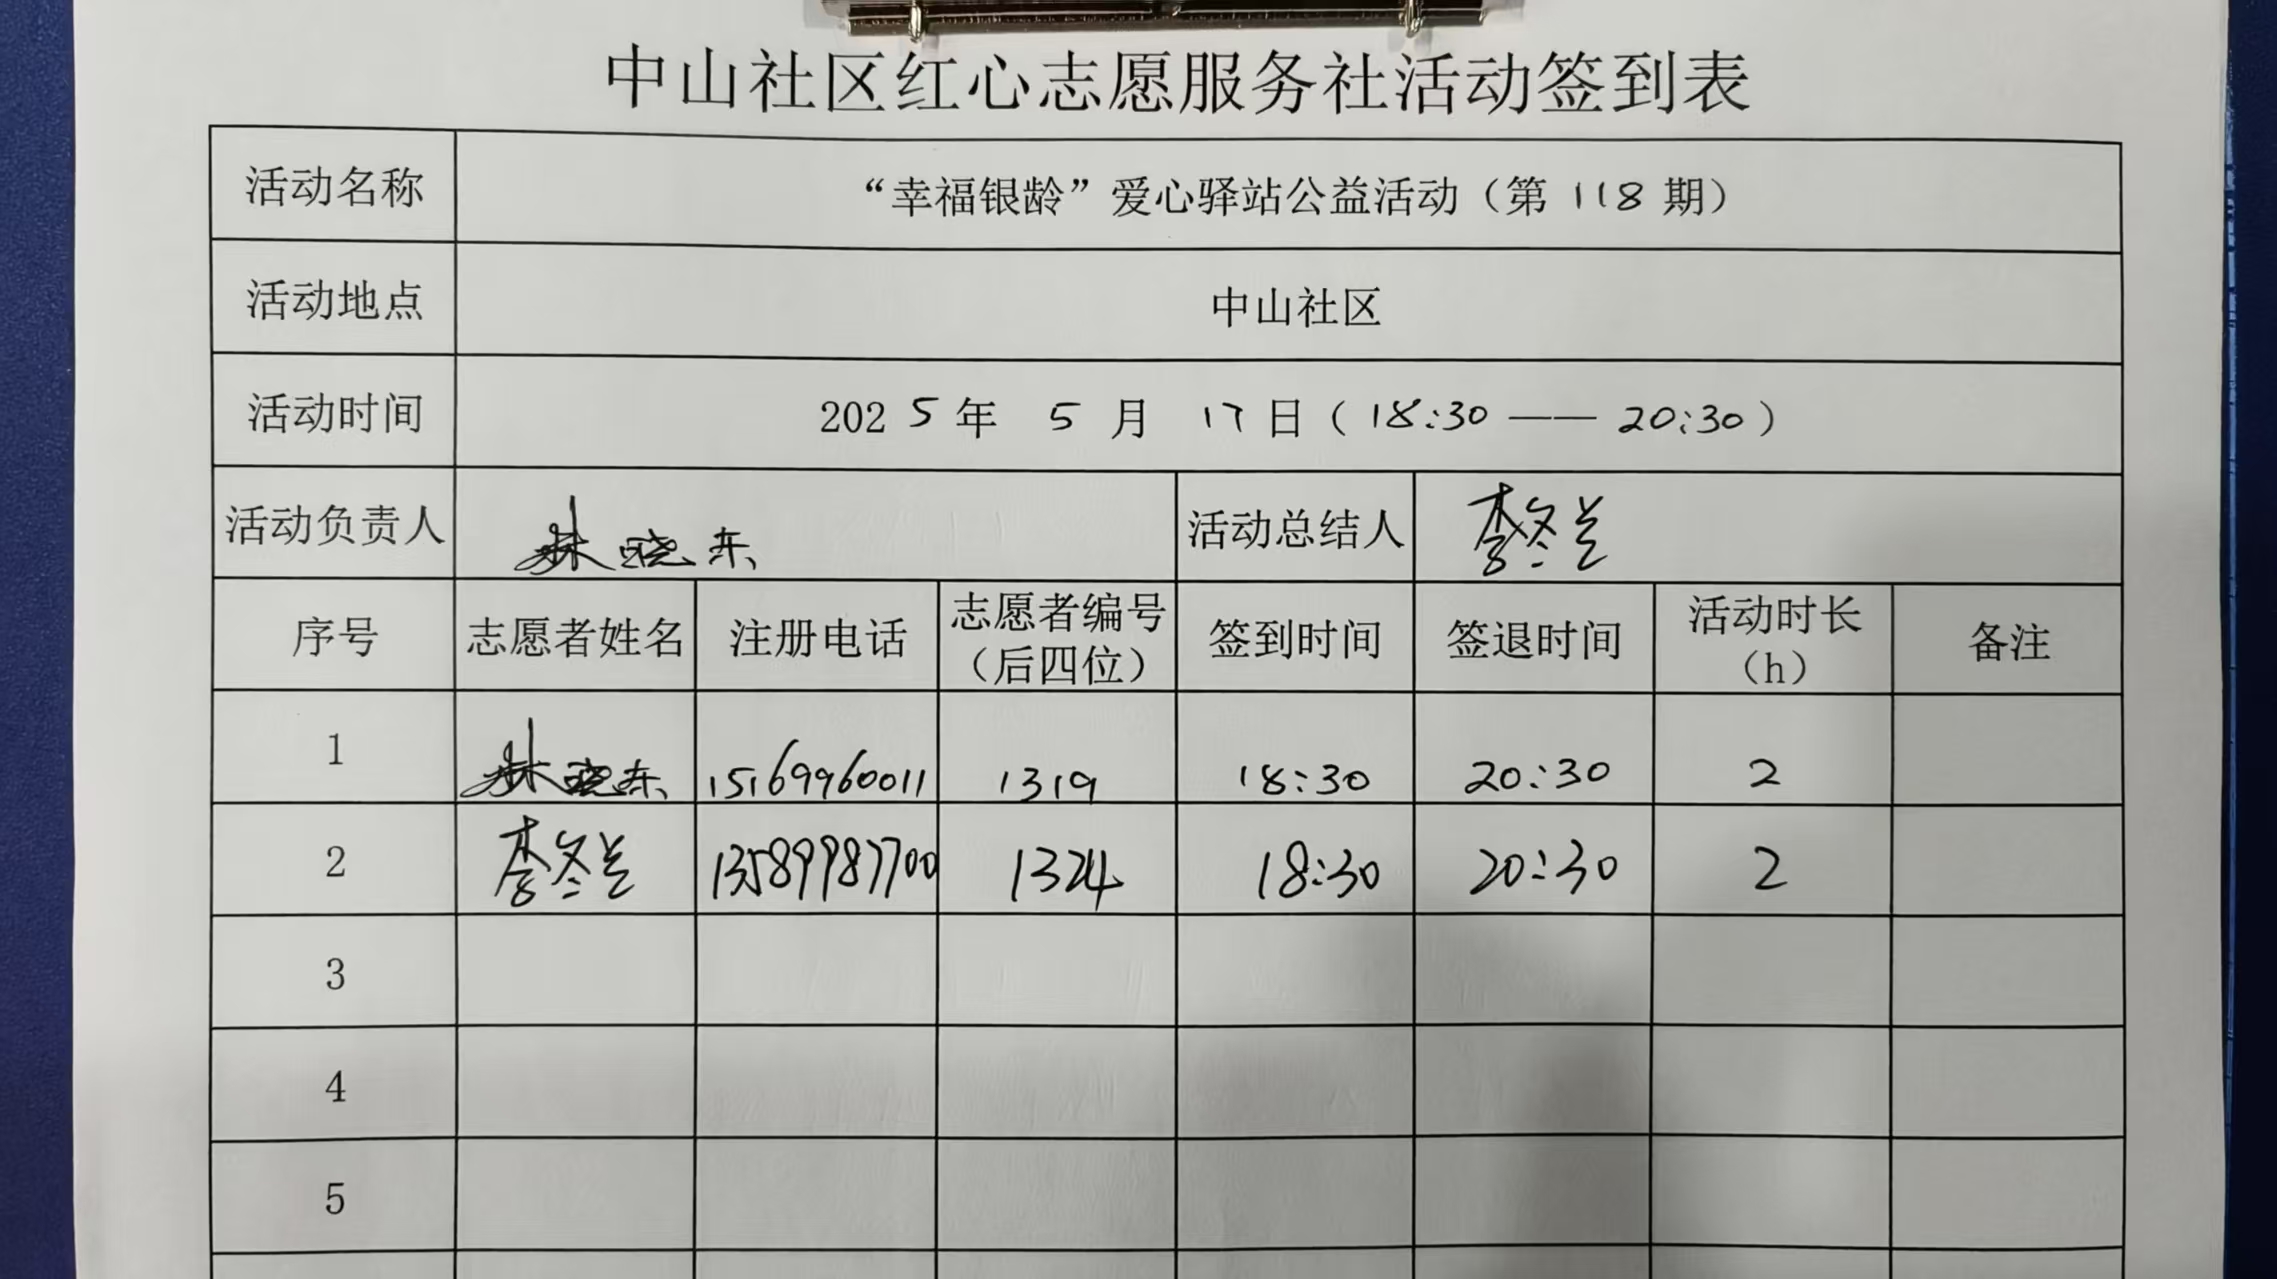 中山社区红心志愿服务社活动签到表
活动名称 “幸福银龄”爱心驿站公益活动（第 118 期）
活动地点 中山社区
活动时间 2025 年 5 月 17 日（18:30 —— 20:30）
活动负责人 林晓东 活动总结人 李冬兰
序号 志愿者姓名 注册电话 志愿者编号（后四位） 签到时间 签退时间 活动时长（h） 备注
1 林晓东 15169960011 1319 18:30 20:30 2
2 李冬兰 13589987700 1324 18:30 20:30 2
3
4
5